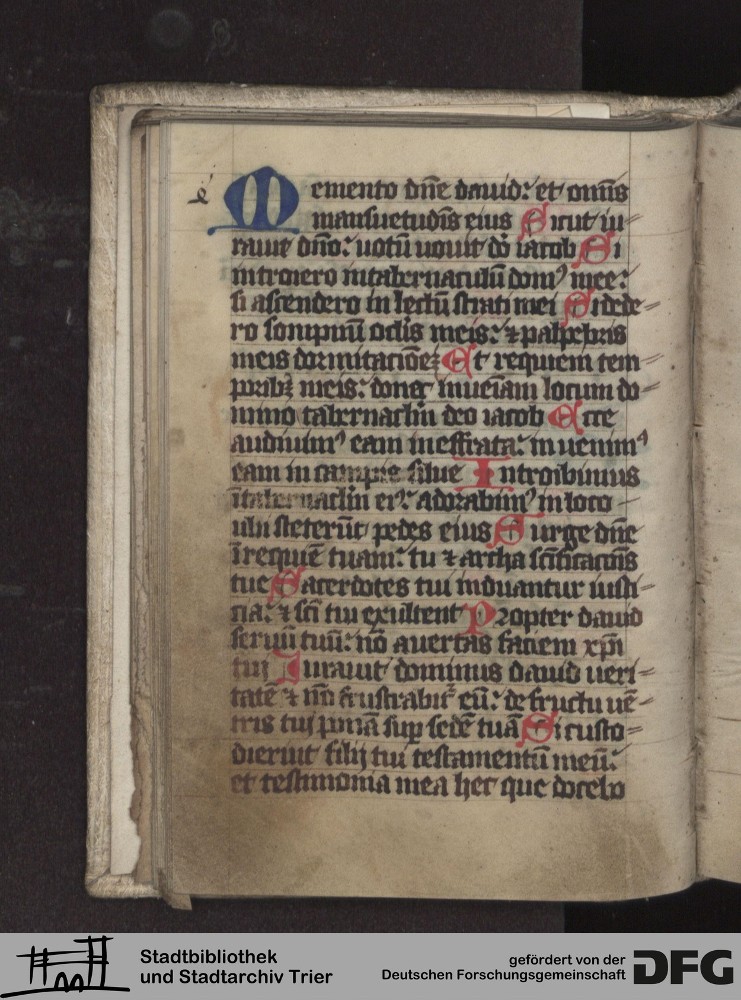 Memento dn̄e dauid: et om̄is
mansuetudīs eius Sicut iu
rauit dn̄o: uotū uouit dō iacob Si
introiero intabernaculū domꝰ mee:
si ascendero in lectū strati mei Si dede
ro sompnū oclis meis: ⁊ palpebris
meis dormitacionē Et requiem tem
poribꝫ meis: donec inueniam locum do
mino tabernaclm deo iacob Ecce
audiuimꝰ eam in effrata: inuenimꝰ
eam in campis silue Introibimus
ītabernaclm ei: adorabimꝰ in loco
ubi steterūt pedes eius Surge dn̄e
ī requiē tuam: tu ⁊ archa sc̄ificaciōis
tue Sacerdotes tui induantur iusti
cia: ⁊ sc̄i tui exultent Propter dauid
seruū tuū: nō auertas faciem xp̄i
tui Iurauit dominus dauid ueri
tatē ⁊ nō frustrabit̉ eū: de fructu uē
tris tui ponā sup sedē tuā Si custo
dierint filij tui testamentū meū:
et testimonia mea hec que docebo
Stadtbibliothek
und Stadtarchiv Trier
gefördert von der
Deutschen Forschungsgemeinschaft
DFG